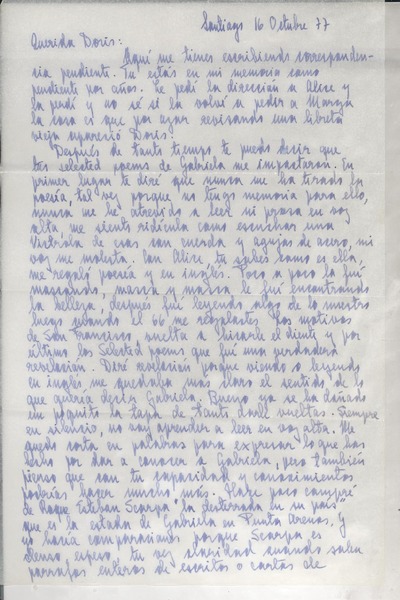 Santiago 16 Octubre 77
Querida Doris:
Aquí me tienes escribiendo corresponden-
cia pendiente. Tu estás en mi memoria como
pendiente por años. Le pedí la dirección a Alice y
la perdí y no sé si la volví a pedir a Marga
la cosa es que por azar revisando una libreta
vieja apareció Doris.
Después de tanto tiempo te puedo decir que
tus selected poems de Gabriela me impactaron. En
primer lugar te diré que nunca me ha tirado la
poesía, tal vez porque no tengo memoria para ello,
nunca me he atrevido a leer ni prosa en voz
alta, me siento ridícula como escuchar una
Victrola de esas con cuerda y agujas de acero, mi
voz me molesta. Con Alice, tu sabes como es ella,
me regaló poesía y en inglés. Poco a poco la fui
mascando, masca y masca le fui encontrando
la belleza, después fui leyendo algo de lo nuestro
luego cuando el 66 me regalaste Los motivos
de San Francisco vuelta a hincarle el diente y por
último los Selected poems que fue una verdadera
revelación. Digo revelación porque viendo o leyendo
en inglés me quedaba más claro el sentido de lo
que quería decir Gabriela. Bueno ya se ha dañado
un poquito la tapa de tanto darle vueltas. Siempre
en silencio, no voy aprender a leer en voz alta. Me
quedo corta en palabras para expresar lo que has
hecho por dar a conocer a Gabriela, pero también
pienso que con tu capacidad y conocimientos
podrías hacer mucho más. Hace poco compré
de Roque Esteban Scarpa, la desterrada en su patria
que es la estada de Gabriela en Punta Arenas, y
yo hacía comparaciones porque Scarpa es
denso, espeso, tu vez claridad cuando salen
párrafos enteros de escritos o cartas de